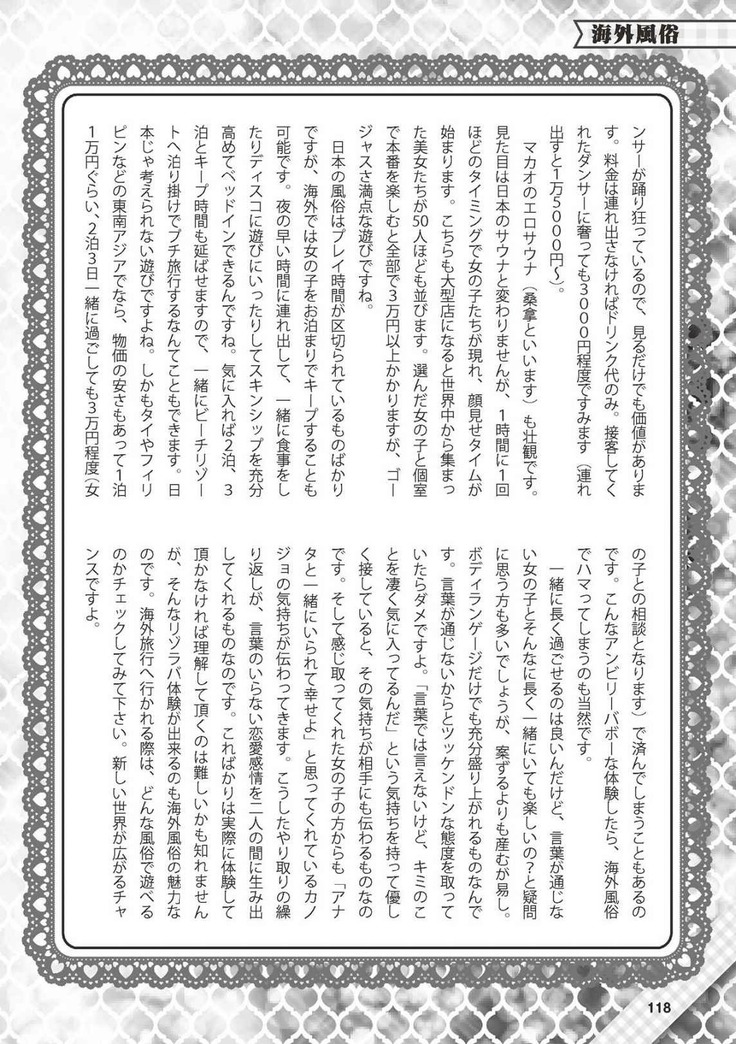 海外風俗
ンサーが踊り狂っているので、見るだけでも価値がありま
す。料金は連れ出さなければドリンク代のみ。接客してく
れたダンサーに奢っても3000円程度ですみます（連れ
出すと1万5000円〜）。
マカオのエロサウナ（桑拿といいます）も壮観です。
見た目は日本のサウナと変わりませんが、1時間に1回
ほどのタイミングで女の子たちが現れ、顔見せタイムが
始まります。こちらも大型店になると世界中から集まっ
た美女たちが50人ほども並びます。選んだ女の子と個室
で本番を楽しむと全部で3万円以上かかりますが、ゴー
ジャスさ満点な遊びですね。
日本の風俗はプレイ時間が区切られているものばかり
ですが、海外では女の子をお泊まりでキープすることも
可能です。夜の早い時間に連れ出して、一緒に食事をし
たりディスコに遊びにいったりしてスキンシップを充分
高めてベッドインできるんですね。気に入れば2泊、3
泊とキープ時間も延ばせますので、一緒にビーチリゾー
トへ泊り掛けでプチ旅行するなんてこともできます。日
本じゃ考えられない遊びですよね。しかもタイやフィリ
ピンなどの東南アジアでなら、物価の安さもあって1泊
1万円ぐらい、2泊3日一緒に過ごしても3万円程度（女
の子との相談となります）で済んでしまうこともあるの
です。こんなアンビリーバボーな体験したら、海外風俗
でハマってしまうのも当然です。
一緒に長く過ごせるのは良いんだけど、言葉が通じな
い女の子とそんなに長く一緒にいても楽しいの？と疑問
に思う方も多いでしょうが、案ずるよりも産むが易し。
ボディランゲージだけでも充分盛り上がれるものなんで
す。言葉が通じないからとツッケンドンな態度を取って
いたらダメですよ。「言葉では言えないけど、キミのこ
とを凄く気に入ってるんだ」という気持ちを持って優し
く接していると、その気持ちが相手にも伝わるものなの
です。そして感じ取ってくれた女の子の方からも「アナ
タと一緒にいられて幸せよ」と思ってくれているカノ
ジョの気持ちが伝わってきます。こうしたやり取りの繰
り返しが、言葉のいらない恋愛感情を二人の間に生み出
してくれるものなのです。こればかりは実際に体験して
頂かなければ理解して頂くのは難しいかも知れません
が、そんなリゾラバ体験が出来るのも海外風俗の魅力な
のです。海外旅行へ行かれる際は、どんな風俗で遊べる
のかチェックしてみて下さい。新しい世界が広がるチャ
ンスですよ。
118